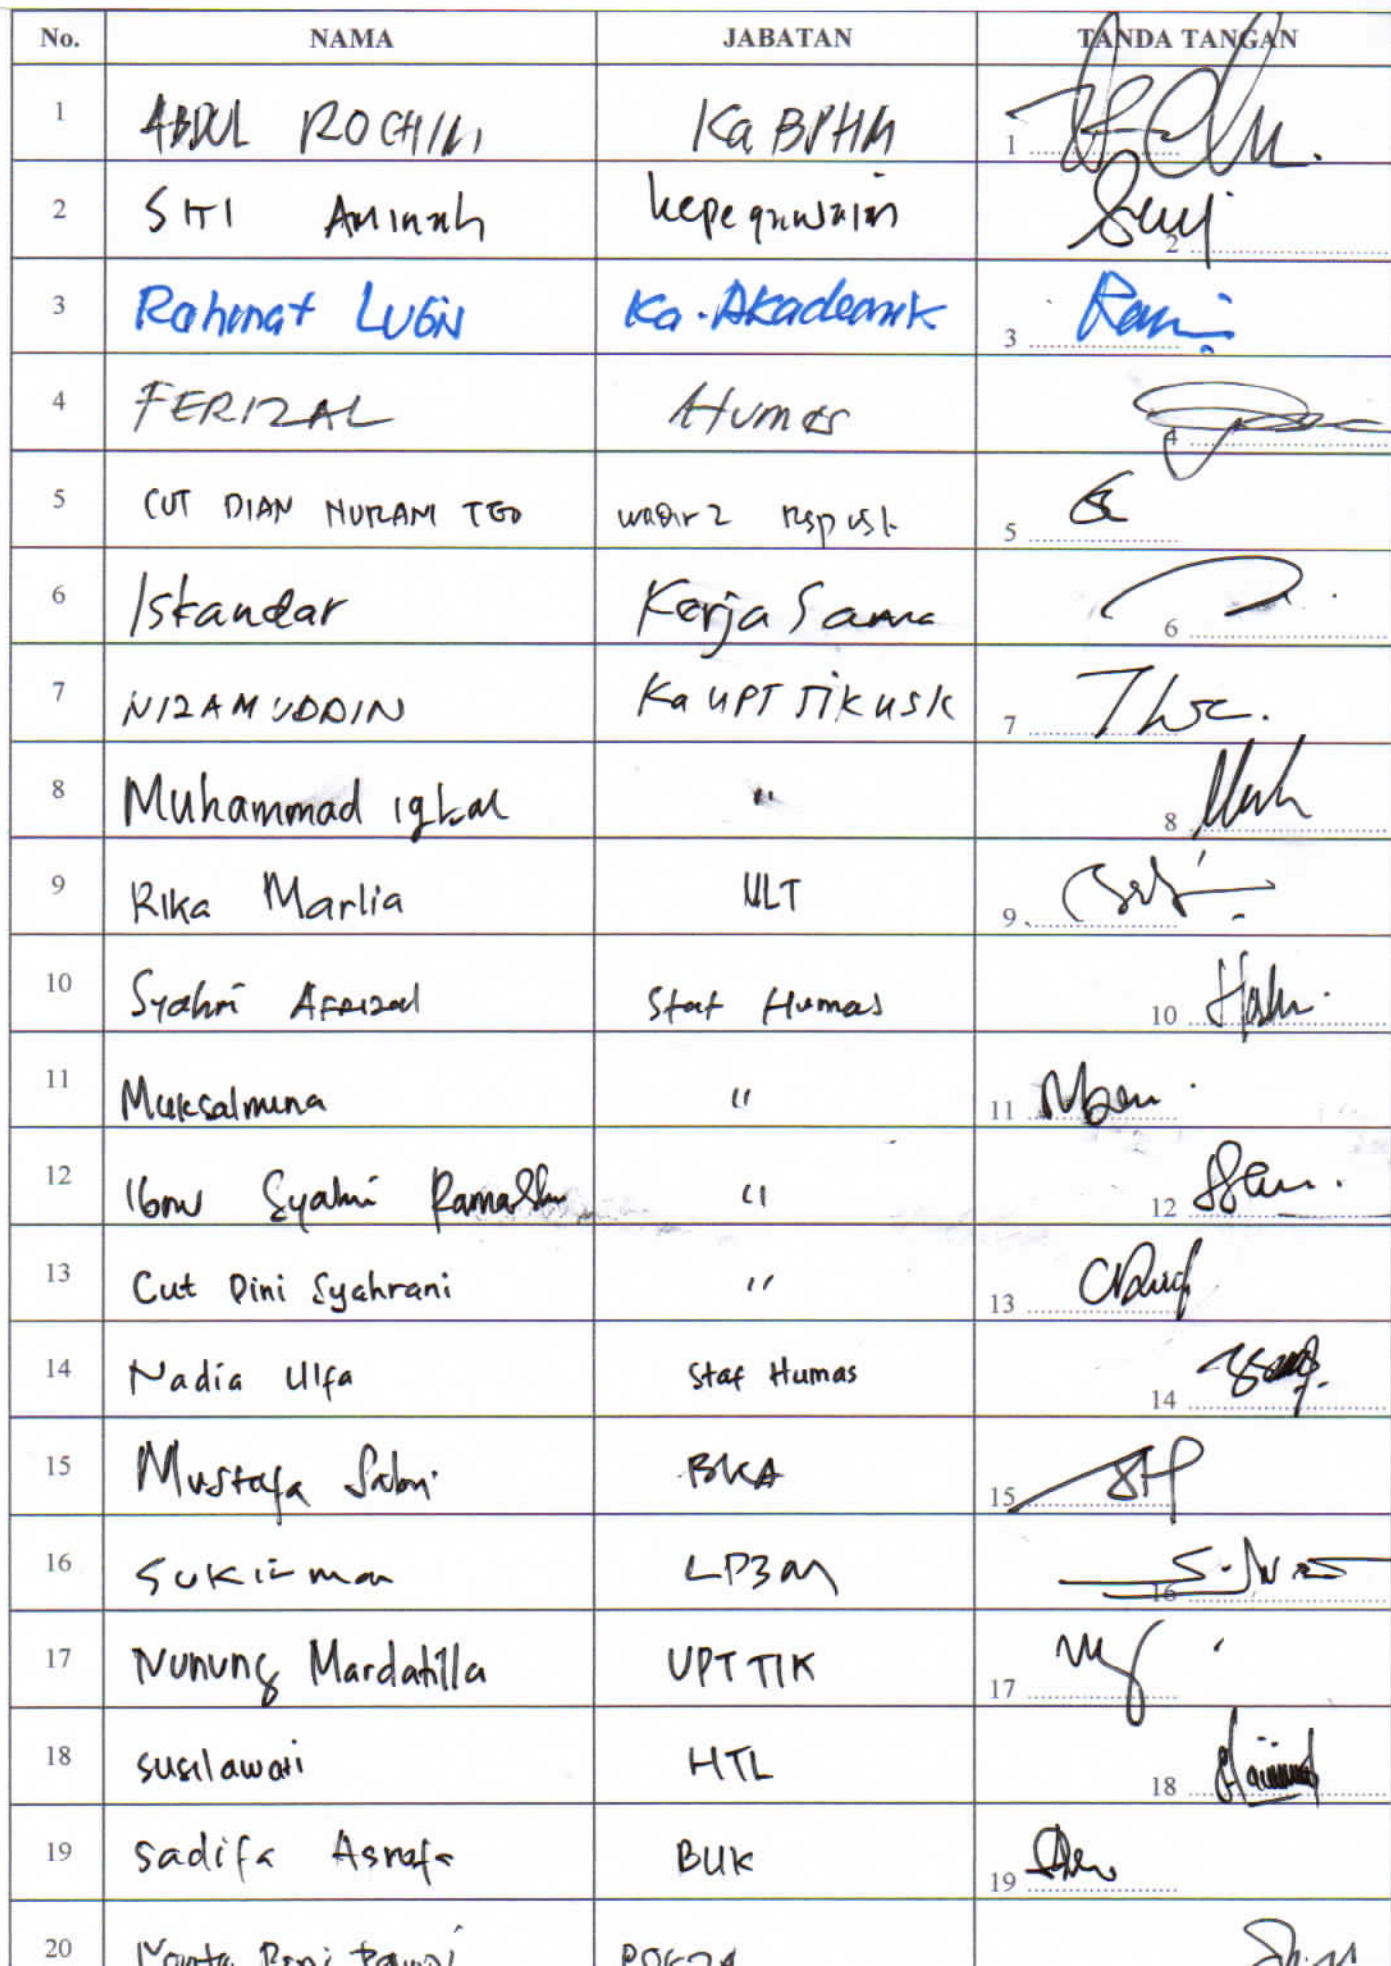 No. NAMA JABATAN TANDA TANGAN
1 ABDUL ROCHIM Ka BPHM 1
2 SITI Aminah kepegawaian 2
3 Rahmat LUGIN Ka. Akademik 3
4 FERIZAL Humas 4
5 CUT DIAN NURANI TEO wadir 2 5
6 Iskandar Kerja Sama 6
7 NIZAMUDDIN Ka UPT TIK USK 7
8 Muhammad iqbal " 8
9 Rika Marlia ULT 9
10 Syahri Afrizal Staf Humas 10
11 Muksalmina " 11
12 Ibnu Syahri " 12
13 Cut Dini Syahrani " 13
14 Nadia Ulfa Staf Humas 14
15 Mustafa Sabri BKA 15
16 LP3M 16
17 Nunung Mardatilla UPT TIK 17
18 susilawati HTL 18
19 sadifa Asrafa BUK 19
20